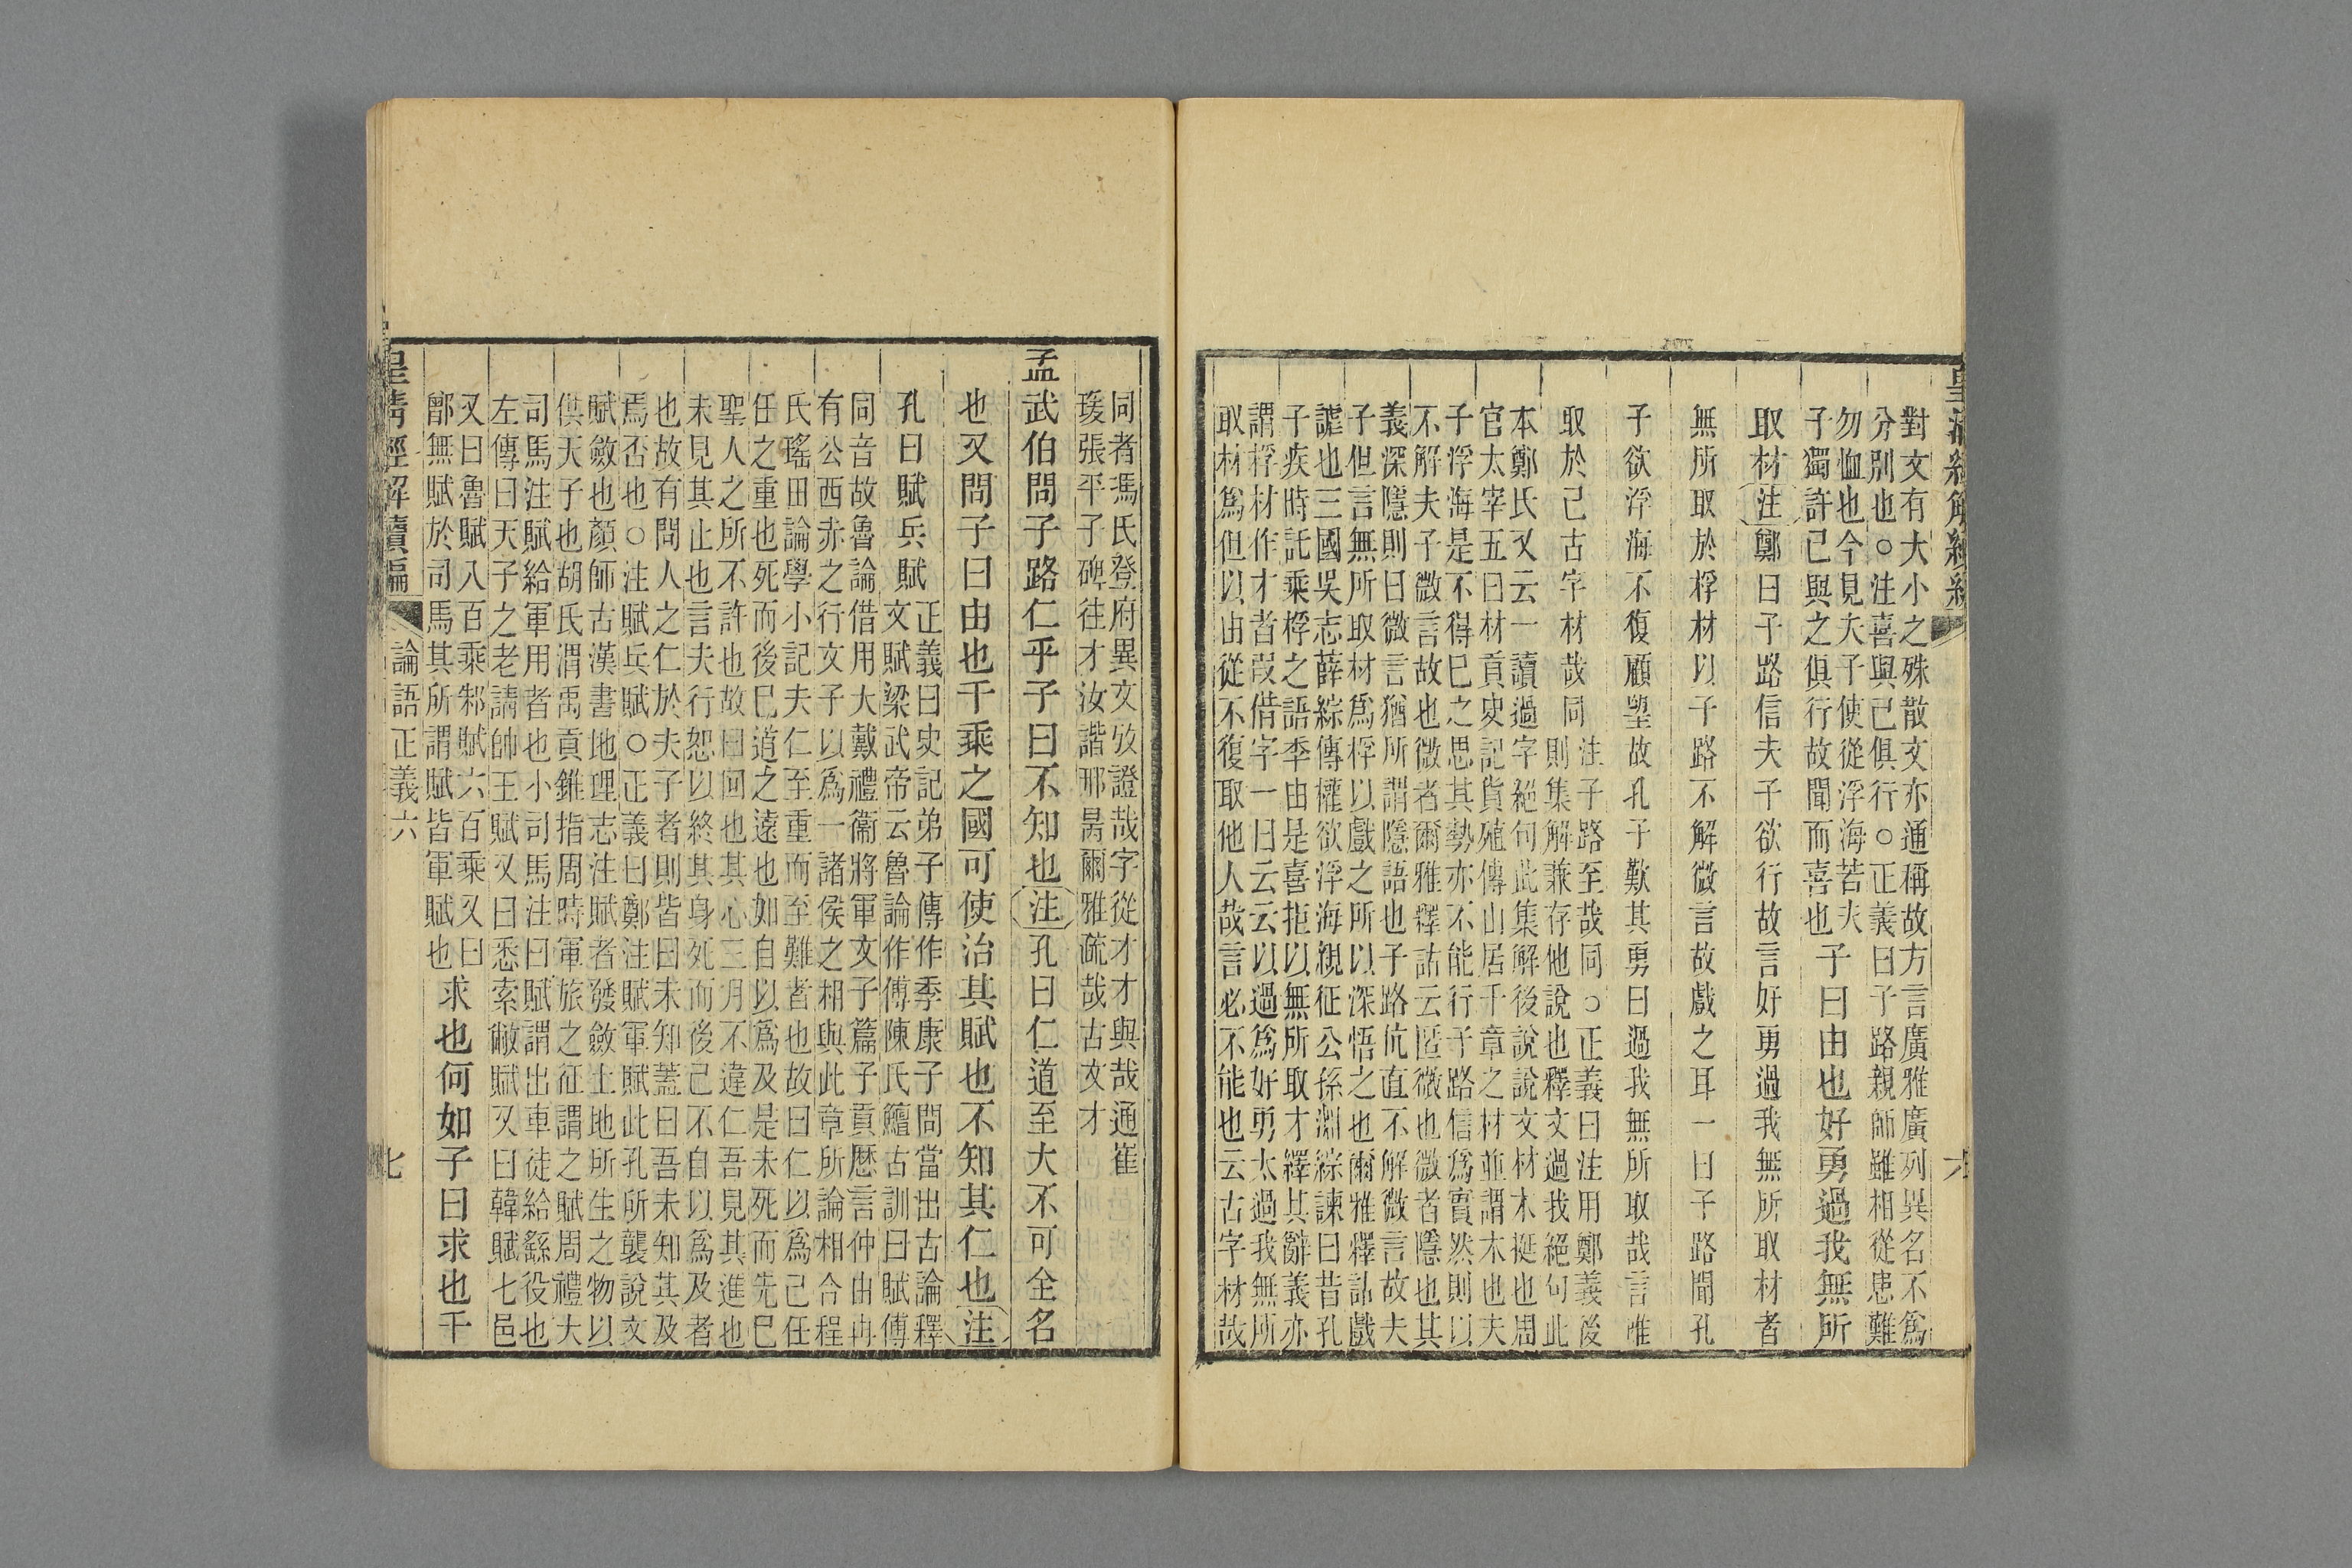 皇清經解續編
六
對文有大小之殊散文亦通稱故方言廣雅廣列異名不爲
分別也○注喜與己俱行○正義曰子路親師雖相從患難
勿恤也今見夫子使從浮海若夫
子獨許己與之俱行故聞而喜也
子曰由也好勇過我無所
取材注鄭曰子路信夫子欲行故言好勇過我無所取材者
無所取於桴材以子路不解微言故戲之耳一曰子路聞孔
子欲浮海不復顧望故孔子歎其勇曰過我無所取哉言唯
取於己古字材哉同
注子路至哉同○正義曰注用鄭義後
則集解兼存他說也釋文過我絕句此
本鄭氏又云一讀過字絕句此集解後說說文材木挺也周
官太宰五曰材貢史記貨殖傳山居千章之材並謂木也夫
子浮海是不得已之思其勢亦不能行子路信爲實然則以
不解夫子微言故也微者爾雅釋詁云匿微也微者隱也其
義深隱則曰微言猶所謂隱語也子路伉直不解微言故夫
子但言無所取材爲桴以戲之所以深悟之也爾雅釋詁戲
謔也三國吳志薛綜傳權欲浮海親征公孫淵綜諫曰昔孔
子疾時託乘桴之語季由是喜拒以無所取才繹其辭義亦
謂桴材作才者叚借字一曰云云以過爲好勇太過我無所
取材爲但以由從不復取他人哉言必不能也云古字材哉
同者馮氏登府異文攷證哉字從才才與哉通崔
瑗張平子碑往才汝諧邢昺爾雅疏哉古文才
孟武伯問子路仁乎子曰不知也注孔曰仁道至大不可全名
也又問子曰由也千乘之國可使治其賦也不知其仁也注
孔曰賦兵賦
正義曰史記弟子傳作季康子問當出古論釋
文賦梁武帝云魯論作傅陳氏鱣古訓曰賦傅
同音故魯論借用大戴禮衞將軍文子篇子貢歷言仲由冉
有公西赤之行文子以爲一諸侯之相與此章所論相合程
氏瑤田論學小記夫仁至重而至難者也故曰仁以爲己任
任之重也死而後已道之遠也如自以爲及是未死而先已
聖人之所不許也故曰回也其心三月不違仁吾見其進也
未見其止也言夫行恕以終其身死而後已不自以爲及者
也故有問人之仁於夫子者則皆曰未知蓋曰吾未知其及
焉否也○注賦兵賦○正義曰鄭注賦軍賦此孔所襲說文
賦斂也顏師古漢書地理志注賦者發斂土地所生之物以
供天子也胡氏渭禹貢錐指周時軍旅之征謂之賦周禮大
司馬注賦給軍用者也小司馬注曰賦謂出車徒給繇役也
左傳曰天子之老請帥王賦又曰悉索敝賦又曰韓賦七邑
又曰魯賦八百乘邾賦六百乘又曰
鄫無賦於司馬其所謂賦皆軍賦也
求也何如子曰求也千
皇清經解續編
論語正義六
七